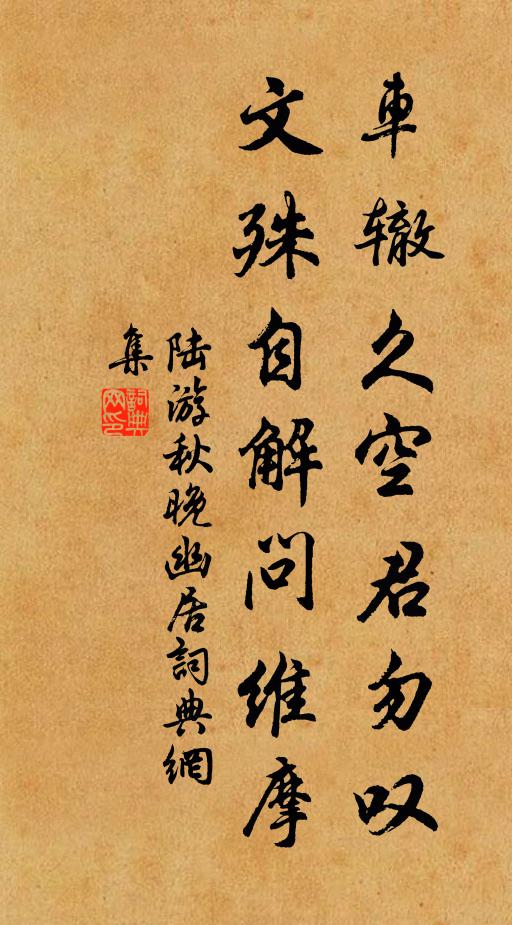 車辙久空君勿叹
文殊自解問維摩
陆游秋晚幽居詞典網
集
詞典网印